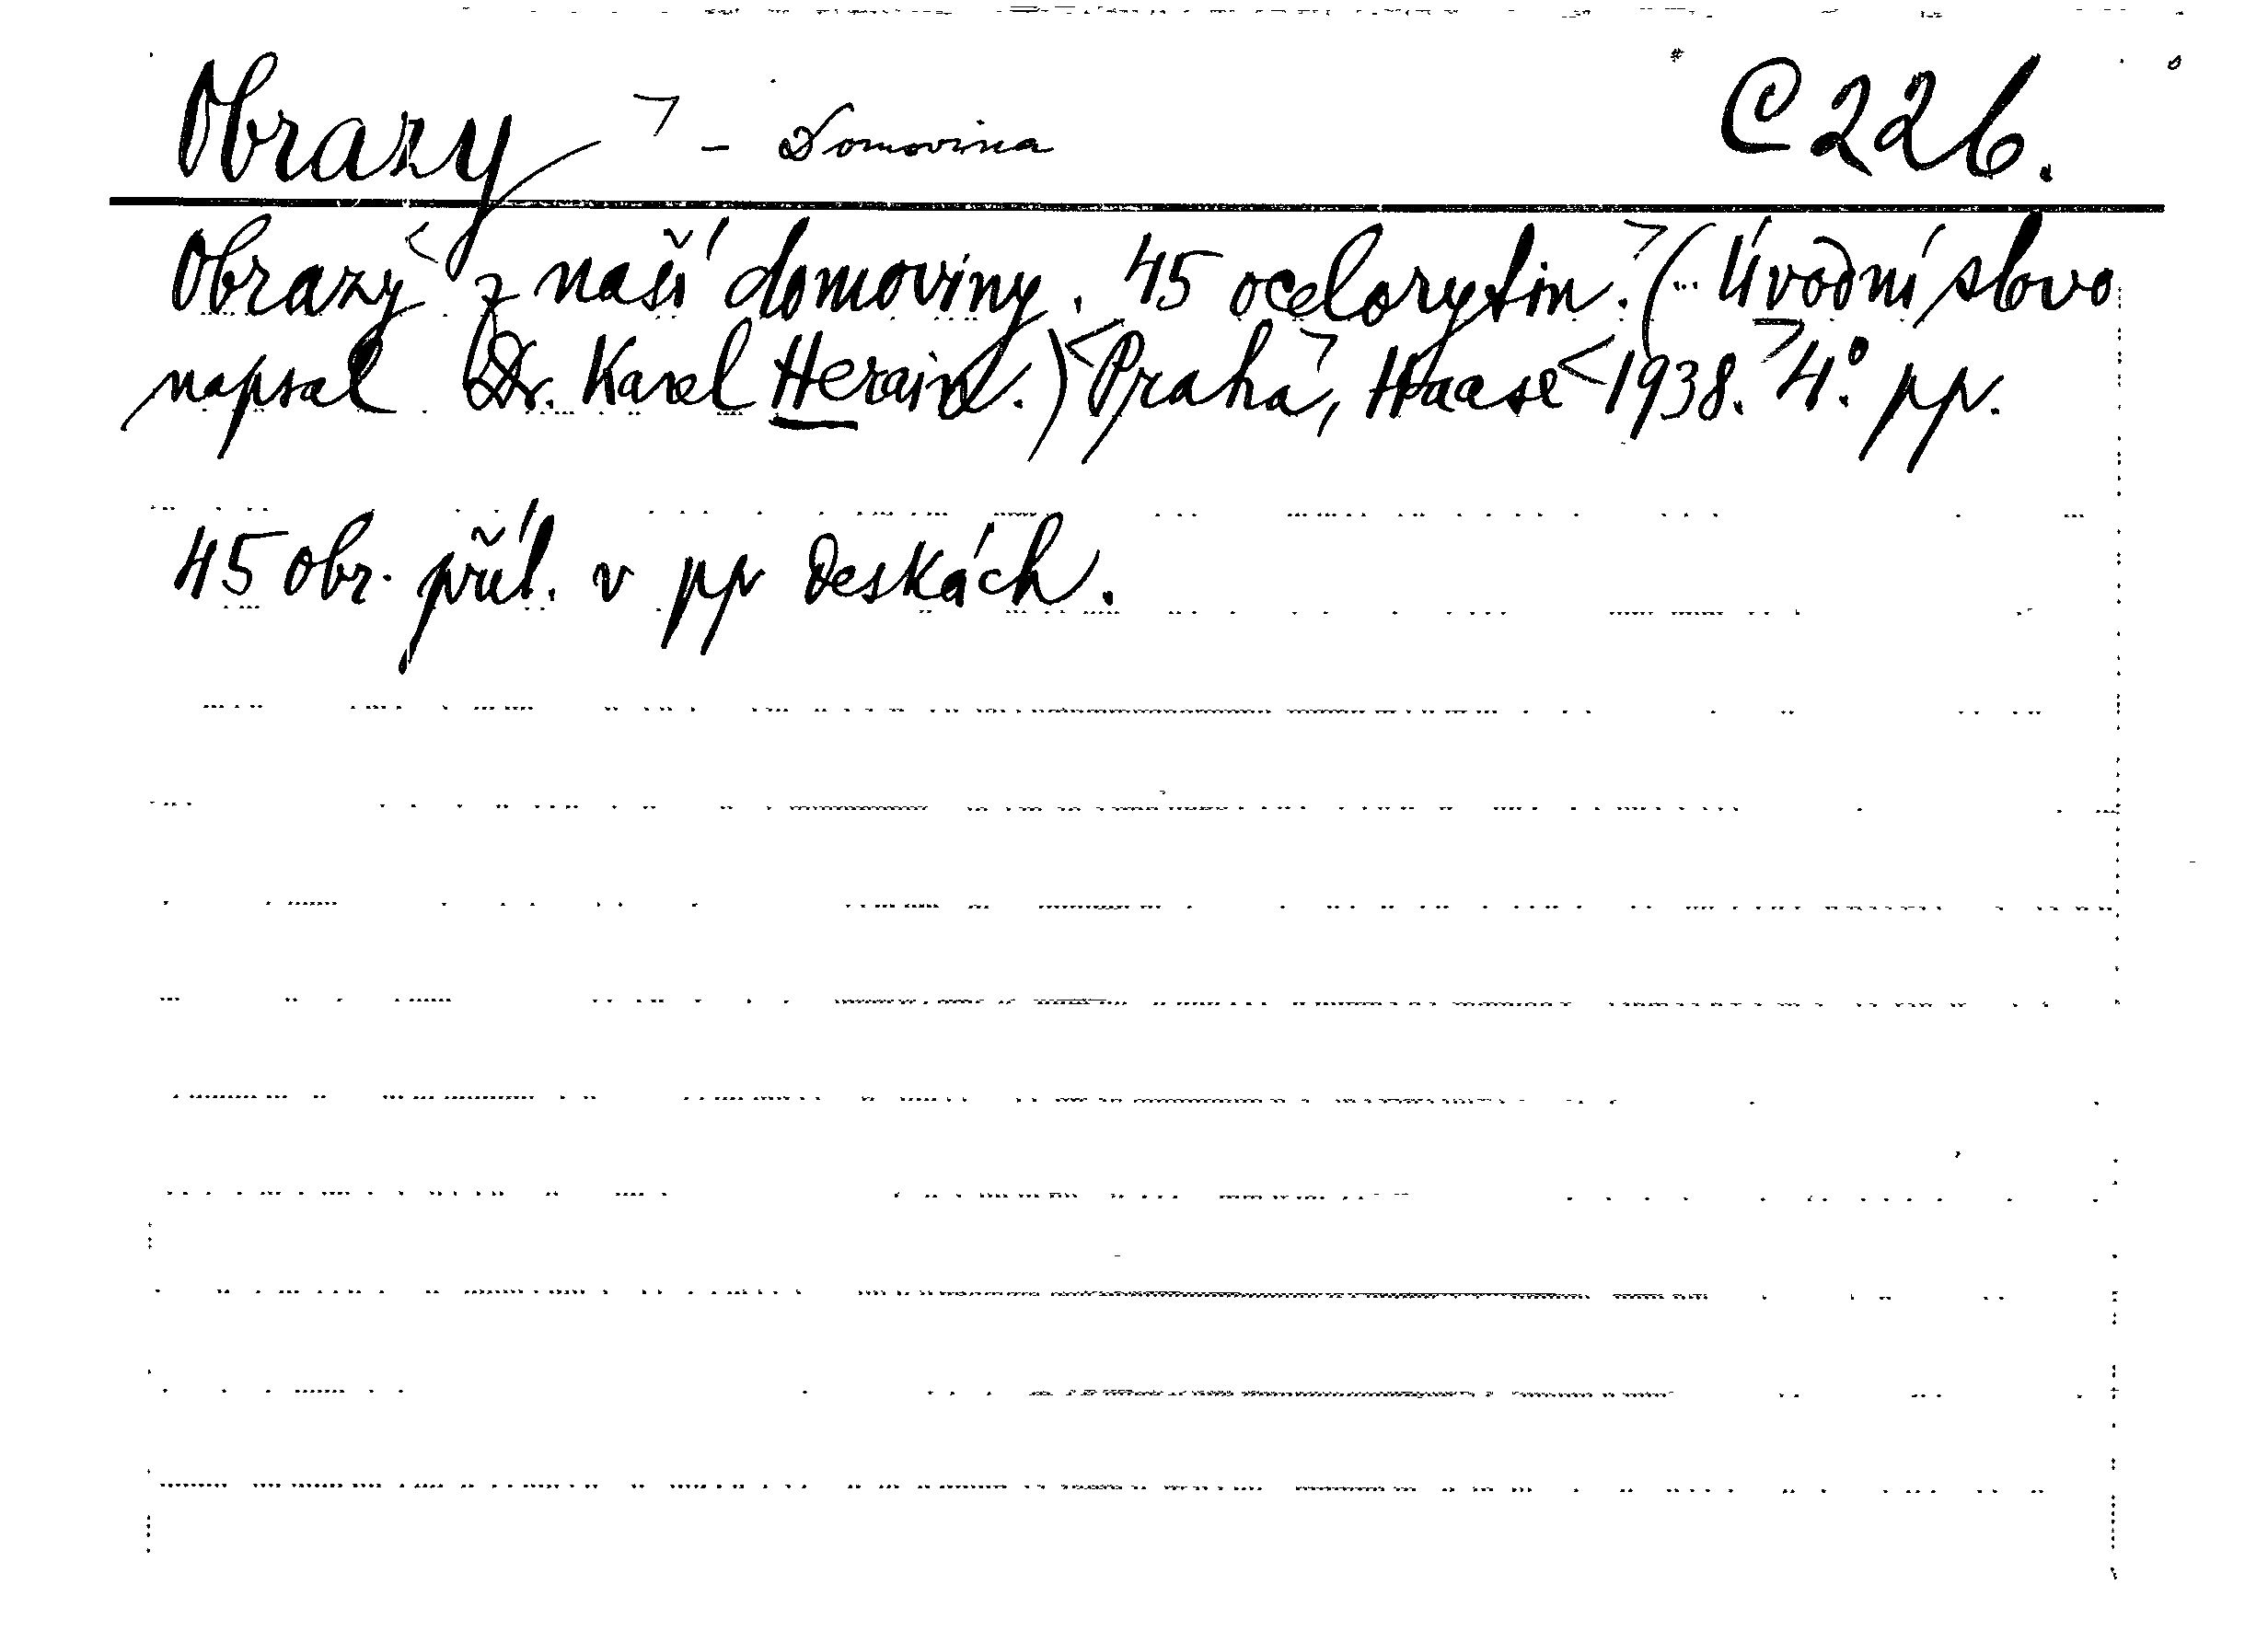 Obrazy - Domovina C 226.
Obrazy z naší domoviny. 45 ocelorytin. (... Úvodní slovo
napsal Dr. Karel Herain.) Praha, Haase 1938. 4°. pp.
45 obr. příl. v pp deskách.